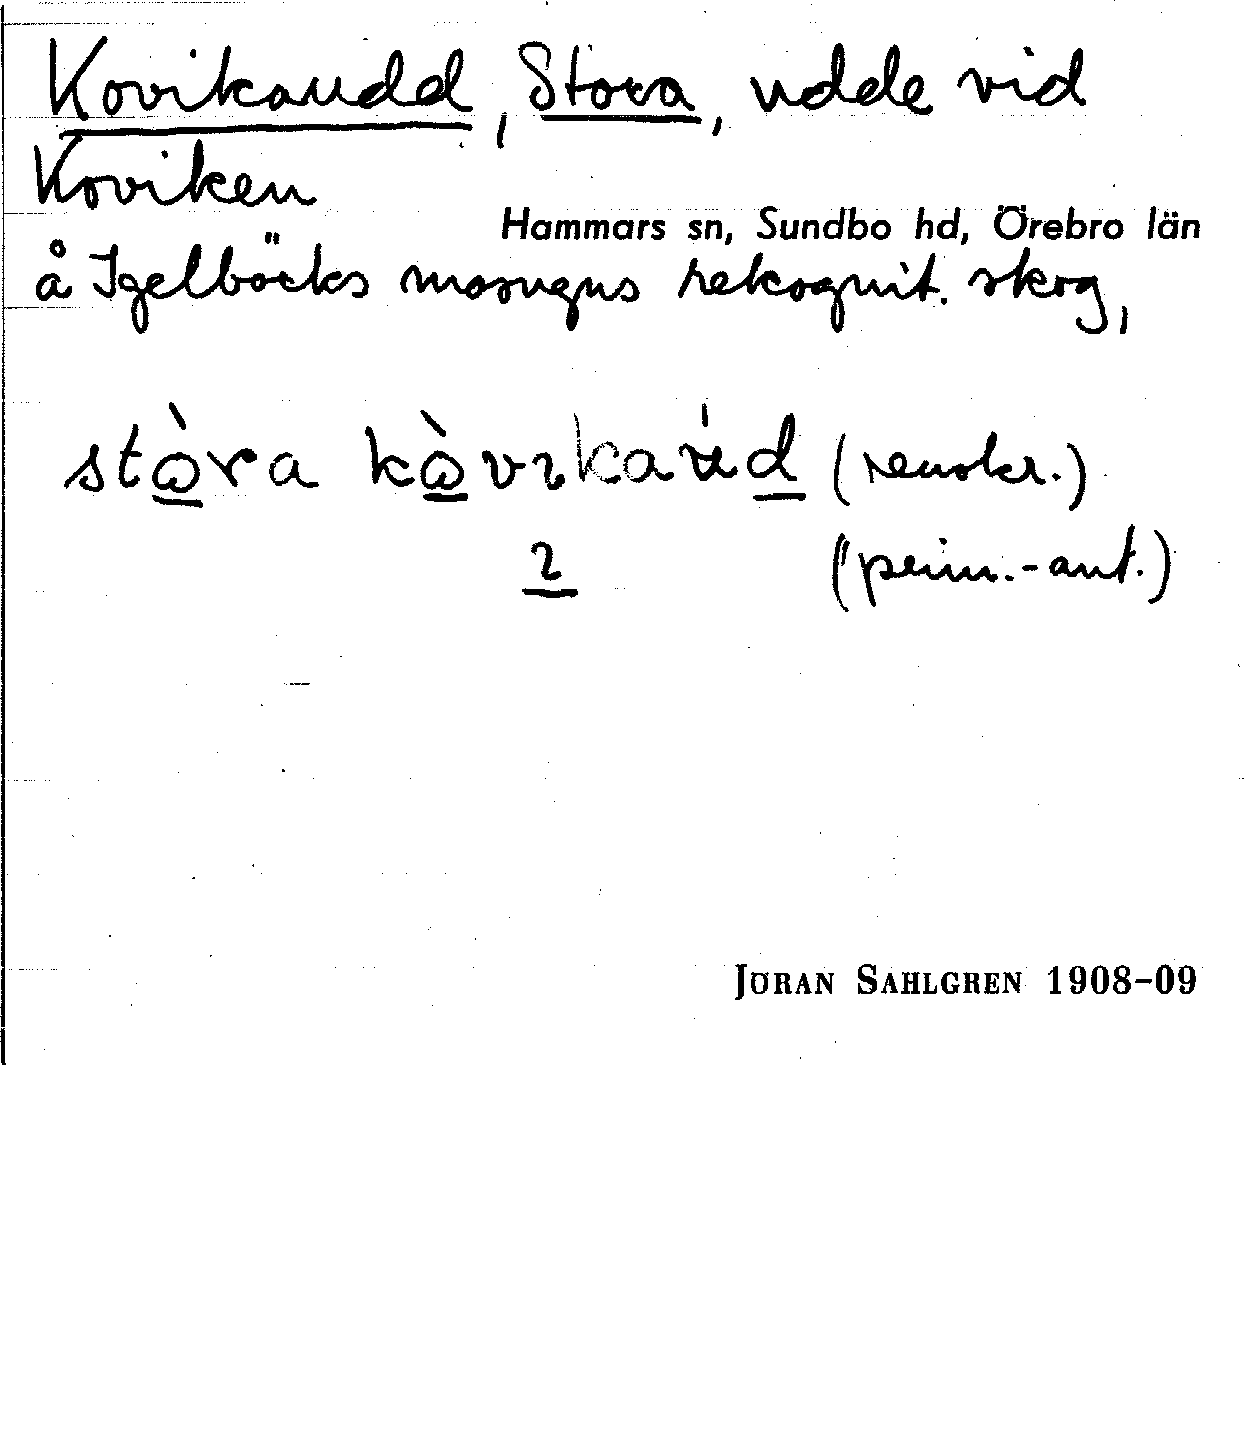 Kovikaudd, Stora, udde vid
Koviken
Hammars sn, Sundbo hd, Örebro län
å Igelbäcks masugns rekognit. skog,
stòra kòvikaúd (renskr.)
ı (prim.-ant.)
JÖRAN SAHLGREN 1908-09